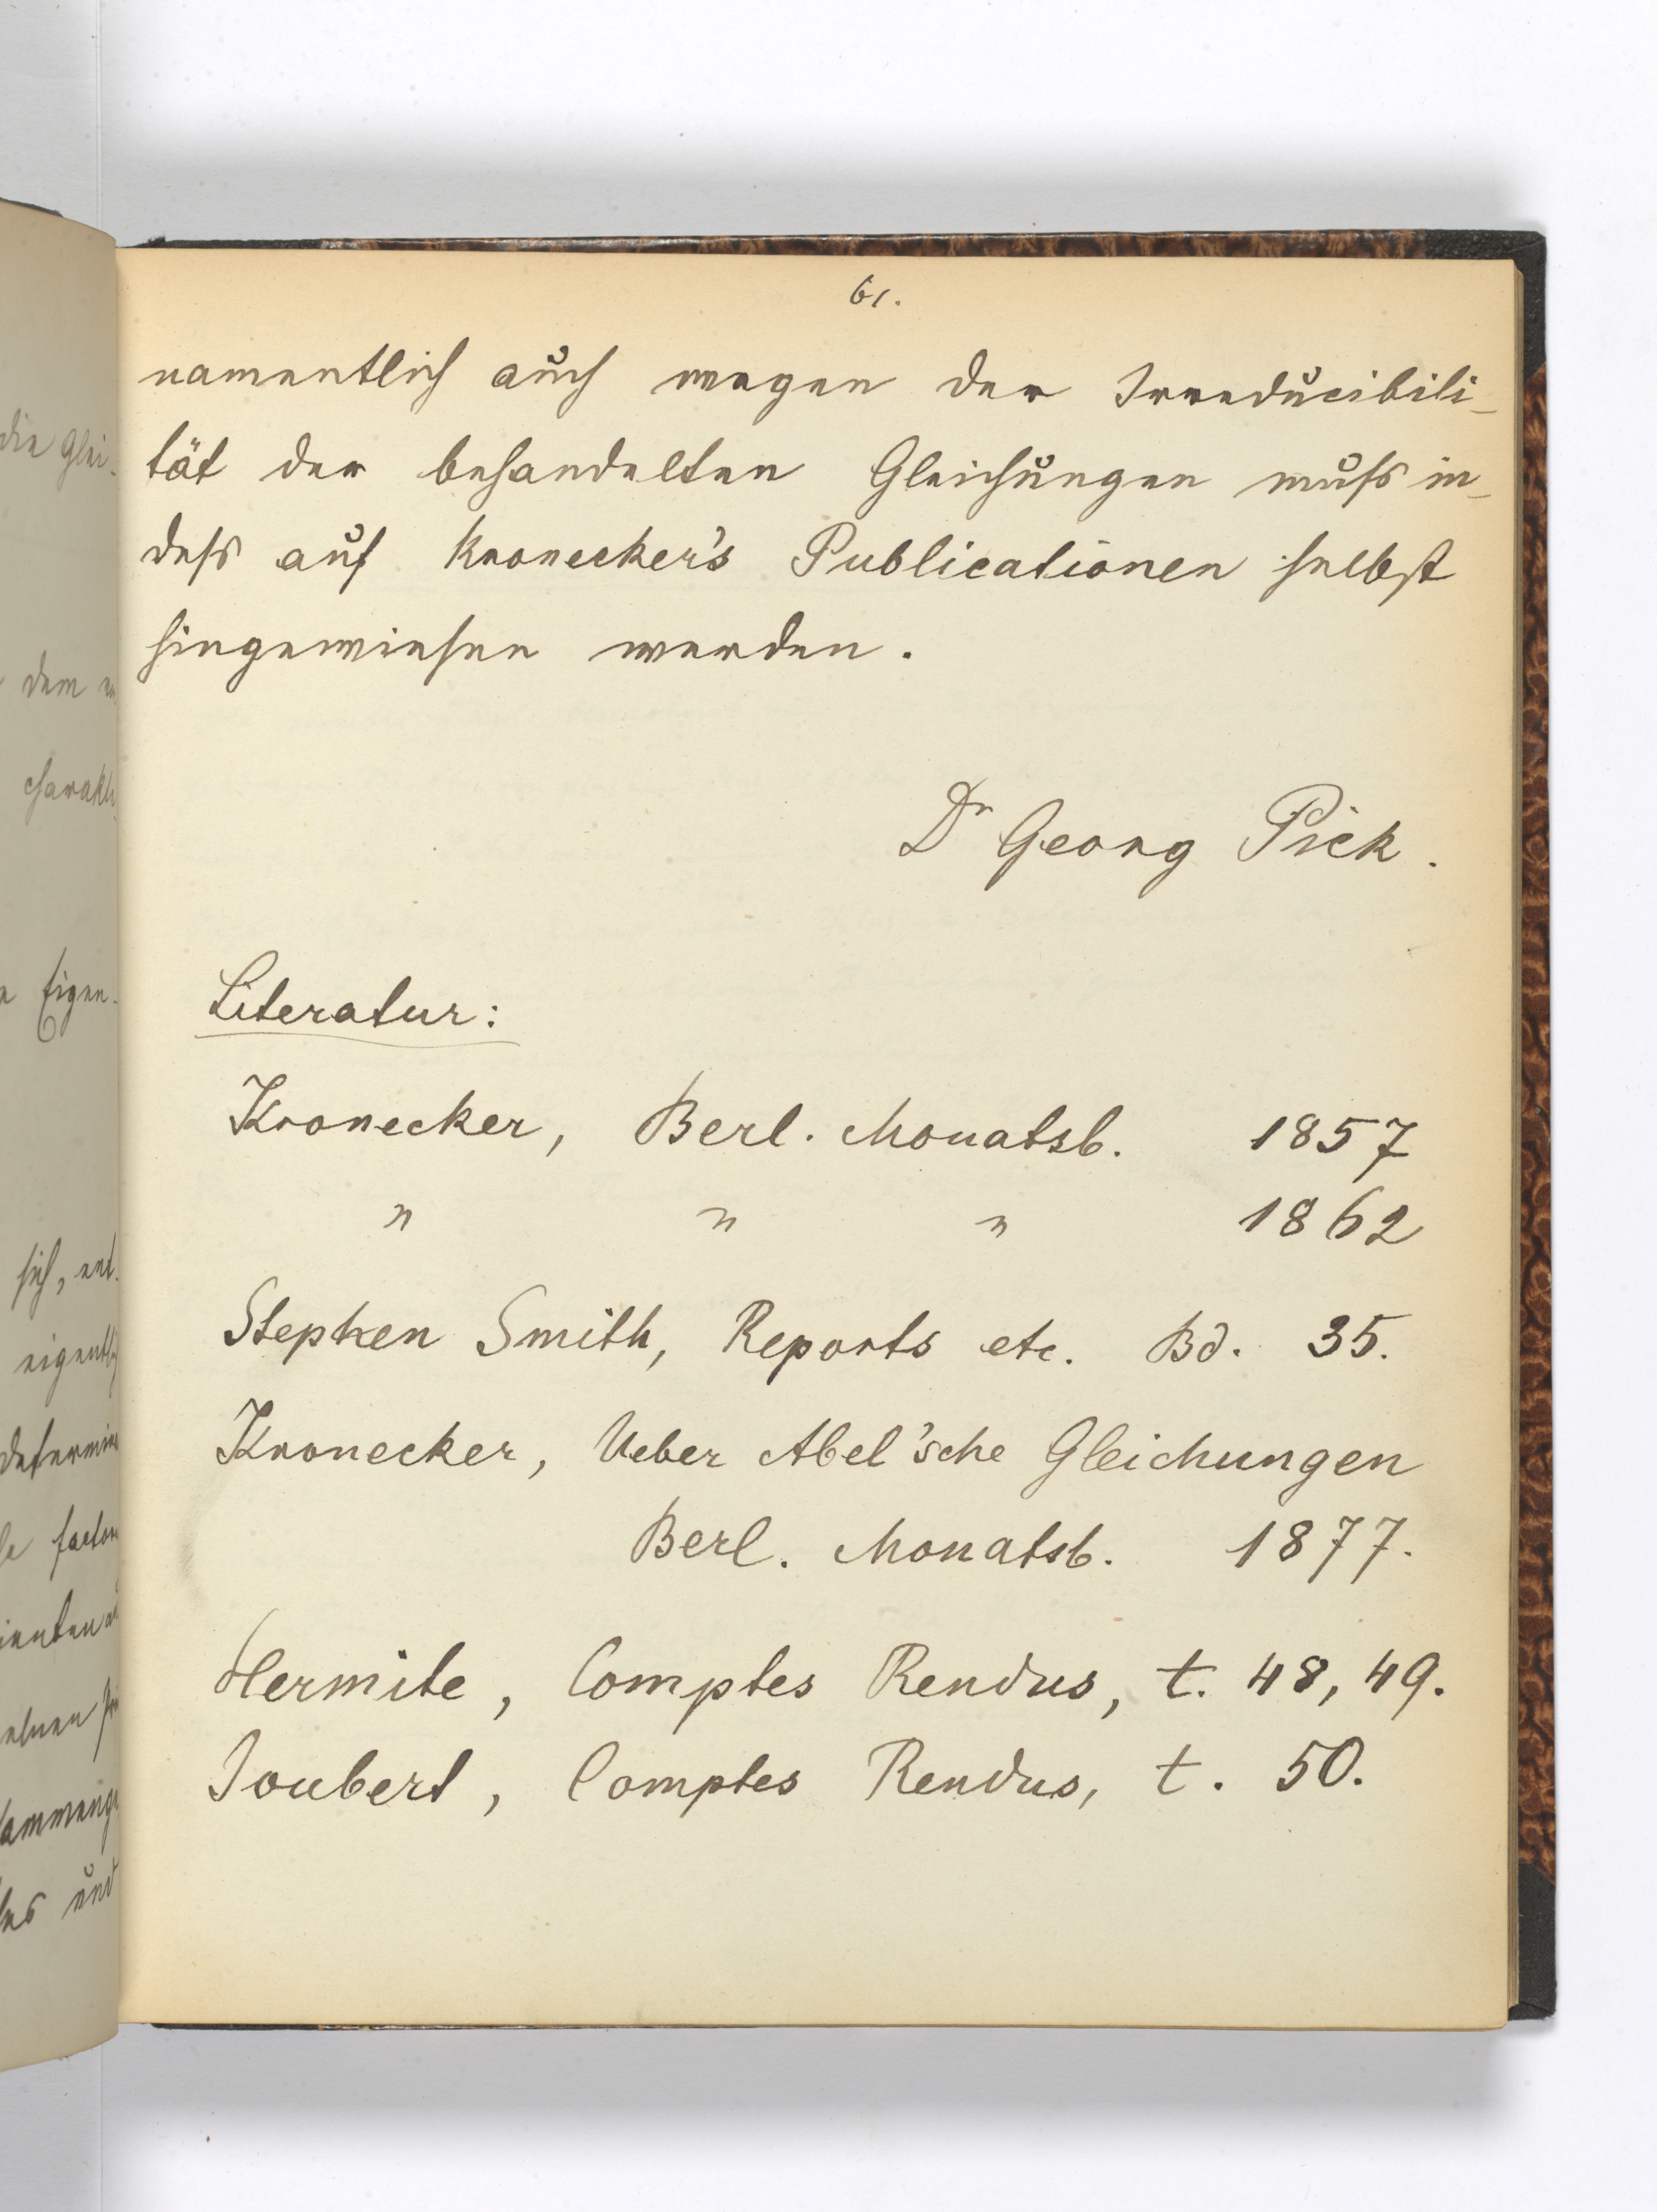 61.
namentlich auch wegen der Irreducibili-
tät der behandelten Gleichungen muss in-
dess auf Kronecker's Publicationen selbst
hingewiesen werden.
Dr Georg Pick.
Literatur:
Kronecker, Berl. Monatsb. 1857
" " " 1862
Stephen Smith, Reports etc. Bd. 35.
Kronecker, Ueber Abel'sche Gleichungen
Berl. Monatsb. 1877.
Hermite, Comptes Rendus, t. 48, 49.
Joubert, Comptes Rendus, t. 50.
die Glei-
dem
Eigen-
sich, ent-
und